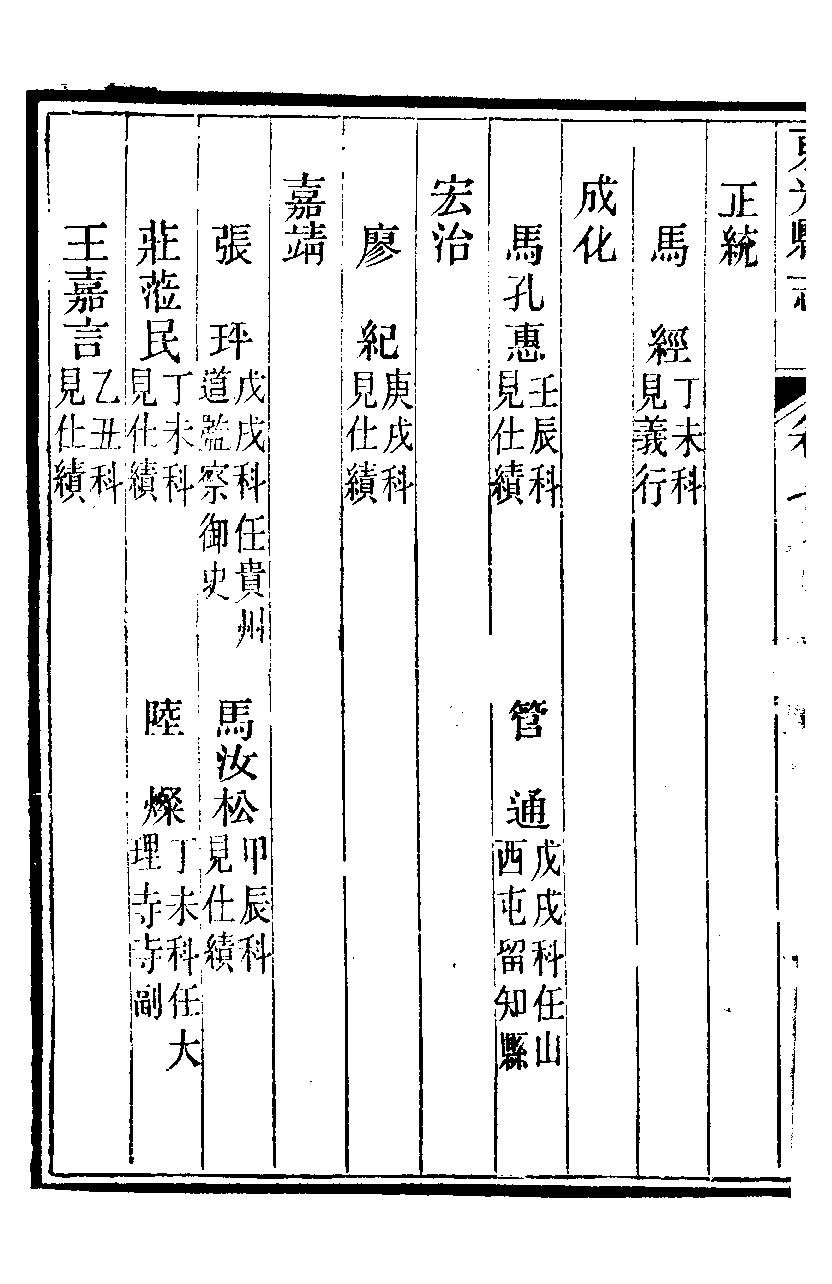 東光縣志 卷七
正統
馬經 丁未科見義行
成化
馬孔惠 壬辰科見仕績 管通 戊戌科任山西屯留知縣
宏治
廖紀 庚戌科見仕績
嘉靖
張玶 戊戌科任貴州道監察御史 馬汝松 甲辰科見仕績
莊蒞民 丁未科見仕績 陸燦 丁未科任大理寺寺副
王嘉言 乙丑科見仕績